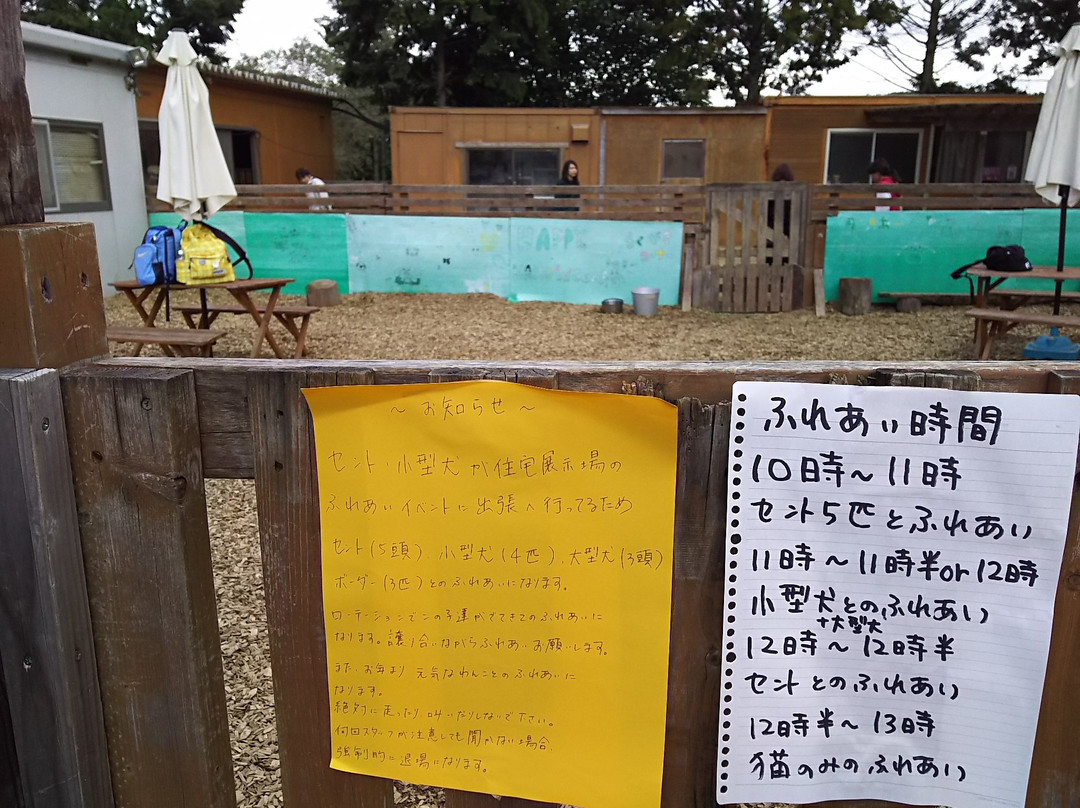 ～お知らせ～
セント・小型犬が住宅展示場の
ふれあいイベントに出張へ行ってるため
セント(5頭)、小型犬(4匹)、大型犬(3頭)
ボーダー(3匹)とのふれあいになります。
ローテーションでこの子達がでてきてのふれあいに
なります。譲り合いながらふれあいお願いします。
また、お年より 元気なわんことのふれあいに
なります。
絶対に走ったり、叫いだりしないで下さい。
何回スタッフが注意しても聞かない場合、
強制的に退場になります。
ふれあい時間
10時～11時
セント5匹とふれあい
11時～11時半or12時
小型犬とのふれあい
+大型犬
12時～12時半
セントとのふれあい
12時半～13時
猫のみのふれあい